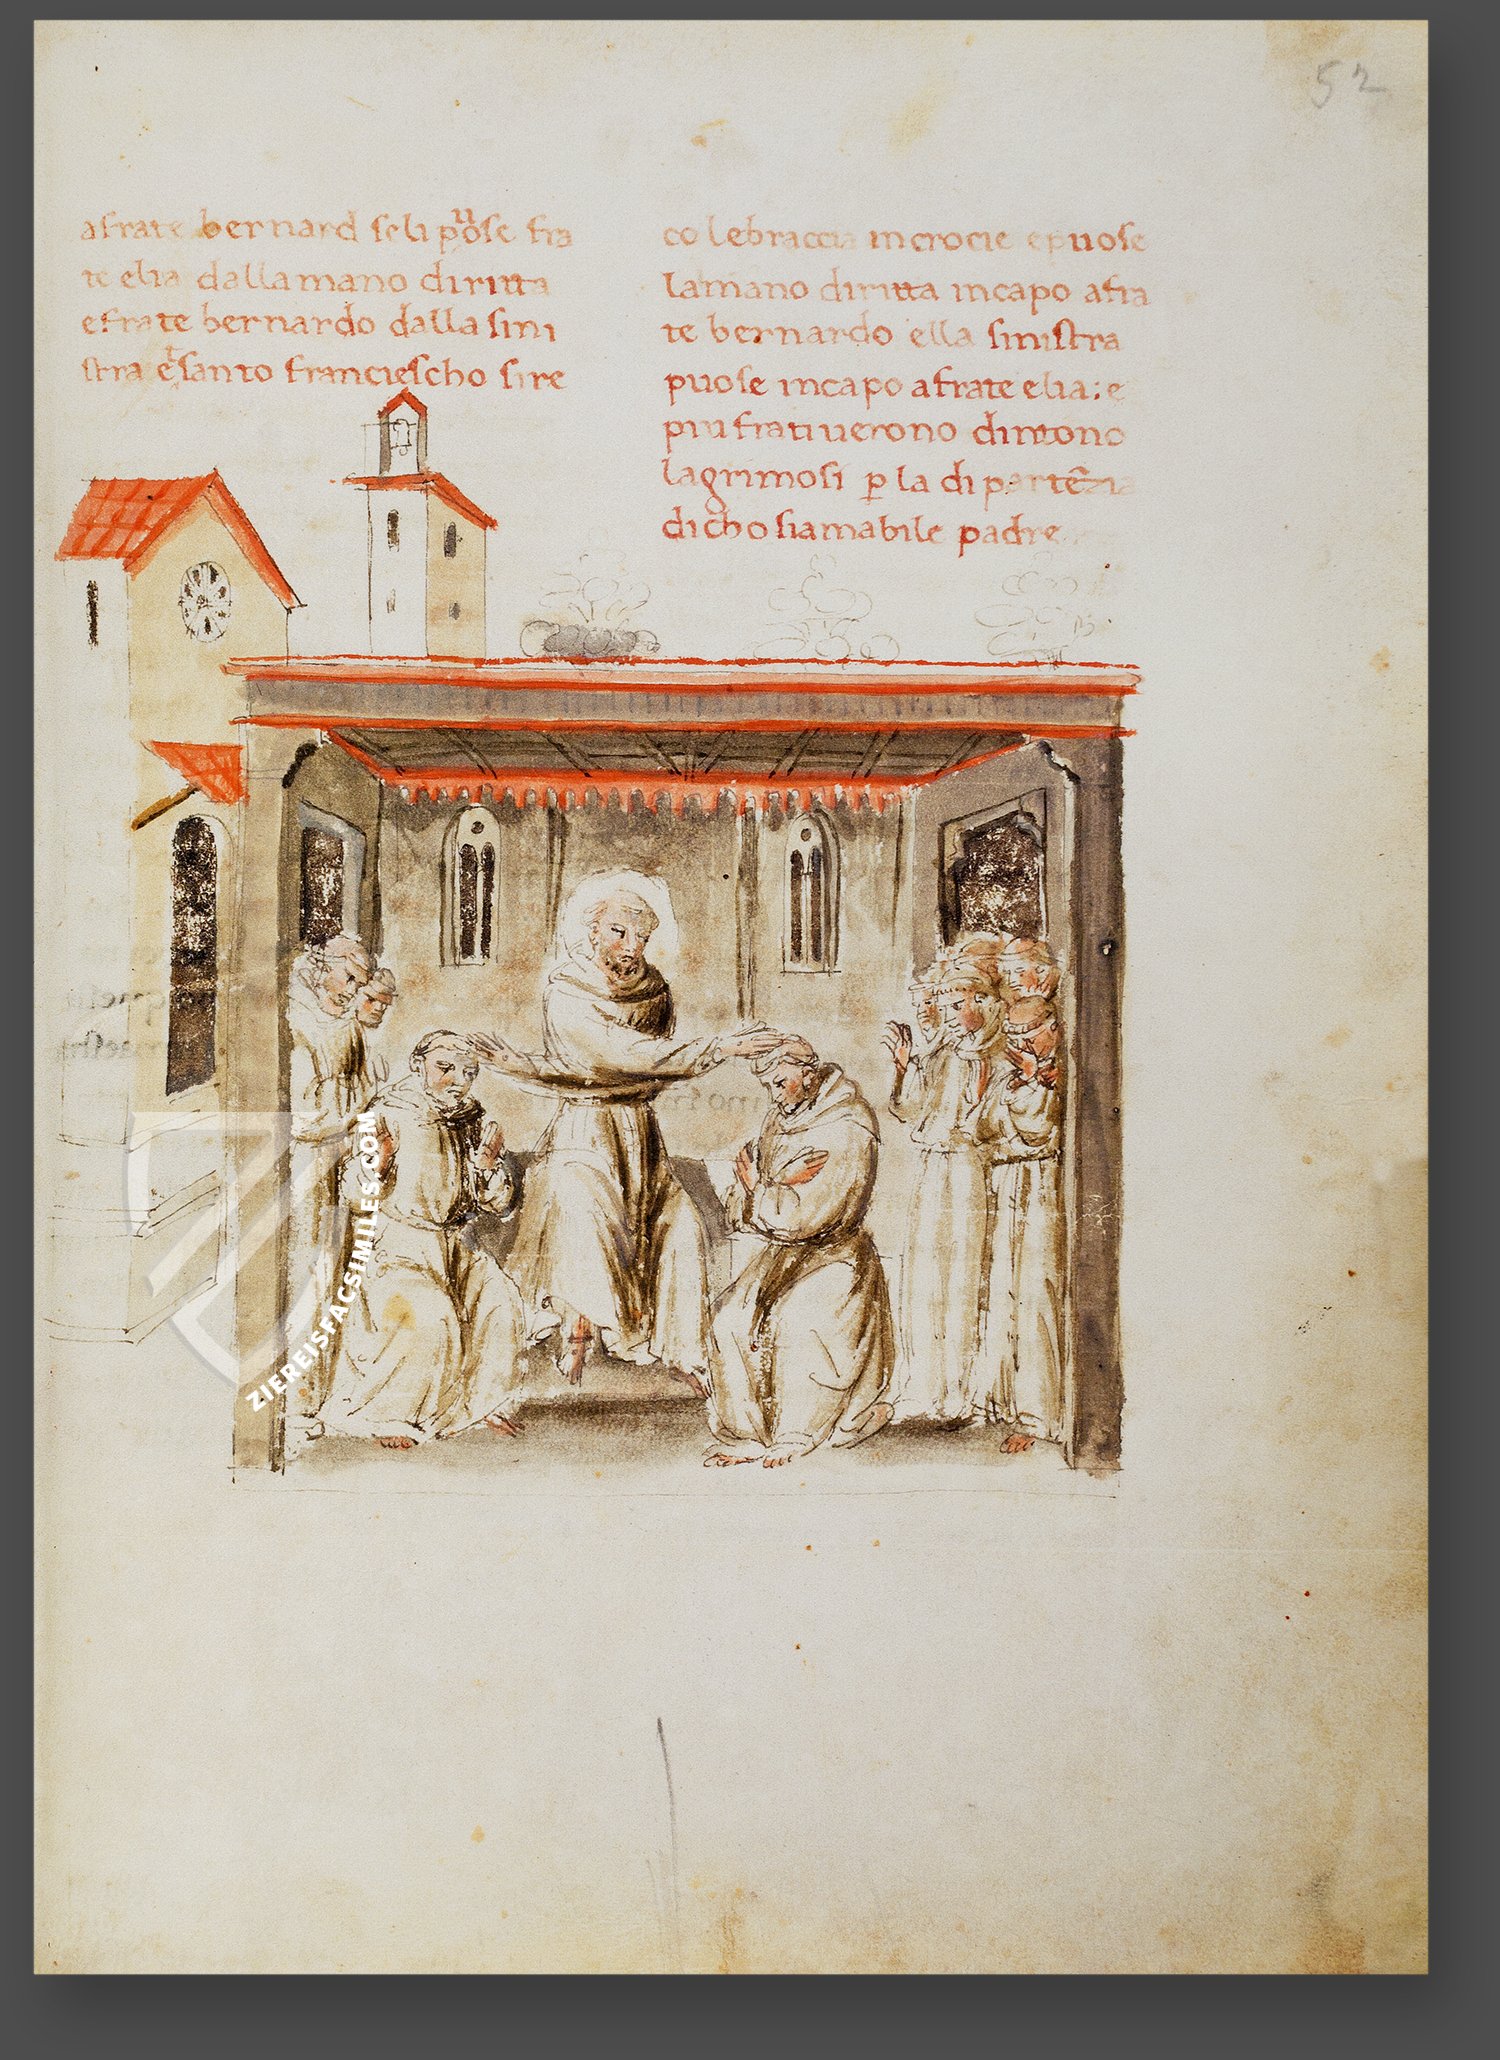 52
afrate bernard seli puose fra
te elia dallamano diritta
efrate bernardo dalla sini
stra e santo franciescho sire
co lebraccia incrocie epuose
lamano diritta incapo afra
te bernardo ella sinistra
puose incapo afrate elia: e
piu frati verono dintono
lagrimosi p la di partēzia
dicho siamabile padre
ZIEREISFACSIMILES.COM